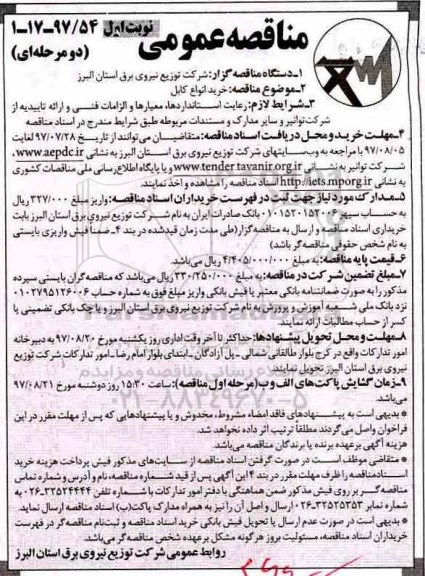 مناقصه عمومی
نوبت اول
۱-۱۷-۹۷/۵۴
(دو مرحله‌ای)
۱-دستگاه مناقصه گزار: شرکت توزیع نیروی برق استان البرز
۲-موضوع مناقصه: خرید انواع کابل
۳-شرایط لازم: رعایت استانداردها، معیارها و الزامات فنی و ارائه تاییدیه از
شرکت توانیر و سایر مدارک و مستندات مربوطه طبق شرایط مندرج در اسناد مناقصه
۴-مهلت خرید و محل دریافت اسناد مناقصه: متقاضیان می‌توانند از تاریخ ۹۷/۰۷/۲۸ لغایت
۹۷/۰۸/۰۵ با مراجعه به وب‌سایتهای شرکت توزیع نیروی برق استان البرز به نشانی www.aepdc.ir،
شرکت توانیر به نشانی www.tender.tavanir.org.ir و یا پایگاه اطلاع‌رسانی ملی مناقصات کشوری
به نشانی http://iets.mporg.ir اسناد مناقصه را مشاهده و اخذ نمایند.
۵-مدارک مورد نیاز جهت ثبت در فهرست خریداران اسناد مناقصه: واریز مبلغ ۳۲۷/۰۰۰ ریال
به حساب سپهر ۰۱۰۱۵۲۰۱۵۲۰۰۶ بانک صادرات ایران به نام شرکت توزیع نیروی برق استان البرز بابت
خریداری اسناد مناقصه و ارسال به مناقصه‌گزار (طی مدت زمان قیدشده در بند ۴-ضمناً فیش واریزی بایستی
به نام شخص حقوقی مناقصه‌گر باشد)
۶-قیمت پایه مناقصه: به مبلغ ۴/۴۰۵/۰۰۰/۰۰۰ ریال می‌باشد.
۷-مبلغ تضمین شرکت در مناقصه: به مبلغ ۳۳۰/۲۵۰/۰۰۰ ریال می‌باشد که مناقصه‌گران بایستی سپرده
مذکور را به صورت ضمانتنامه بانکی معتبر یا فیش بانکی واریز مبلغ فوق به شماره حساب ۰۱۰۲۷۹۵۱۲۶۰۰۶
نزد بانک ملی شعبه آموزش و پرورش به نام شرکت توزیع نیروی برق استان البرز و یا چک بانکی تضمینی یا
کسر از حساب مطالبات ارائه نمایند.
۸-مهلت و محل تحویل پیشنهادها: حداکثر تا آخر وقت اداری روز یکشنبه مورخ ۹۷/۰۸/۲۰ به دبیرخانه
امور تدارکات واقع در کرج بلوار طالقانی شمالی-پل آزادگان-ابتدای بلوار امام رضا-امور تدارکات شرکت توزیع
نیروی برق استان البرز تحویل نمایند.
۹-زمان گشایش پاکت‌های الف و ب (مرحله اول مناقصه): ساعت ۱۵:۳۰ روز دوشنبه مورخ ۹۷/۰۸/۲۱
می‌باشد.
* بدیهی است به پیشنهادهای فاقد امضاء مشروط، مخدوش و یا پیشنهادهایی که پس از مهلت مقرر در این
فراخوان واصل می‌گردند مطلقاً ترتیب اثر داده نخواهد شد.
هزینه آگهی برعهده برنده یا برندگان مناقصه می‌باشد.
* متقاضی موظف است در صورت گرفتن اسناد مناقصه از سایت‌های مذکور فیش پرداخت هزینه خرید
اسناد مناقصه را ظرف مهلت مقرر در بند ۴ این آگهی پس از قید شماره مناقصه، نام و آدرس و شماره تماس
مناقصه‌گر بر روی فیش مذکور ضمن هماهنگی با دفتر امور تدارکات با شماره تلفن ۳۲۵۲۴۴۴۴-۰۲۶ به
شماره نمابر ۳۲۵۲۵۳۵۳-۰۲۶ ارسال و اصل آن را نیز به همراه مدارک پاکت (ب) اسناد مناقصه ارسال نماید.
* بدیهی است در صورت عدم ارسال یا تحویل فیش بانکی خرید اسناد مناقصه و ثبت‌نام مناقصه‌گر در فهرست
خریداران اسناد مناقصه، مسئولیت بروز هرگونه مشکل برعهده شخص مناقصه‌گر می‌باشد.
روابط عمومی شرکت توزیع نیروی برق استان البرز
۰۲۱-۸۸۳۴۹۶۷۰-۵